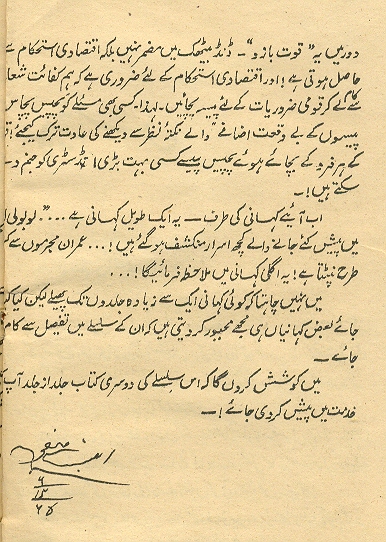 دور میں یہ "قوت بازو" - ڈنڈ بیٹھک میں مضمر نہیں بلکہ اقتصادی استحکام سے
حاصل ہوتی ہے! اور اقتصادی استحکام کے لئے ضروری ہے کہ ہم کفائت شعا
کام لے کر قومی ضروریات کے لئے پیسہ بچائیں۔ لہذا کسی بھی مسئلے کو پچیس پچاس
پیسوں کے بے وقعت اضافے" والے نکتۂ نظر سے دیکھنے کی عادت ترک کیجئے! ق
کے ہر فرد کے بچائے ہوئے پچیس پیسے کسی بہت بڑی انڈسٹری کو جنم د
سکتے ہیں! -
اب آئیے کہانی کی طرف — یہ ایک طویل کہانی ہے ... "لو بولی ل
میں پیش کئے جانے والے کچھ اسرار منکشف ہو گئے ہیں! ... عمران مجرموں سے ک
طرح نپٹتا ہے! یہ اگلی کہانی میں ملاحظہ فرمائیے گا! ...
میں نہیں چاہتا کہ کوئی کہانی ایک سے زیادہ جلدوں تک پھیلے لیکن کیا ک
جائے بعض کہانیاں ہی مجھے مجبور کر دیتی ہیں کہ ان کے سلسلے میں تفصیل سے کام
جائے -
میں کوشش کروں گا کہ اس سلسلے کی دوسری کتاب جلد از جلد آپ ک
خدمت میں پیش کر دی جائے! -
ابن صفی
۶
۱۳
۶۵